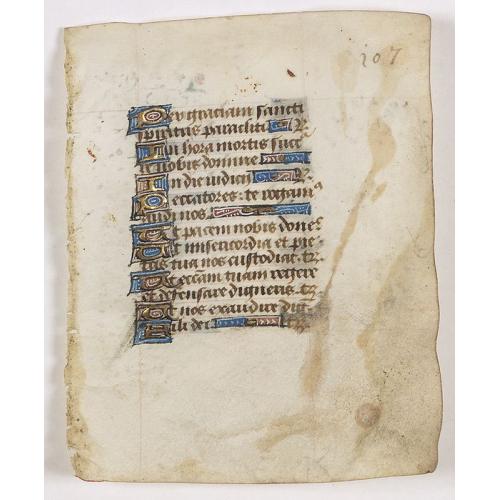 107
Per graciam sancti
spiritus paracliti
In hora mortis succ
re nobis domine
In die iudicii
Peccatores te rogam⁹
audi nos
Et pacem nobis done
Et misericordia et pie
tua nos custodiat
Et eccĺam tuam regere
et defensare digneris
Et nos exaudire dig
Fili dei